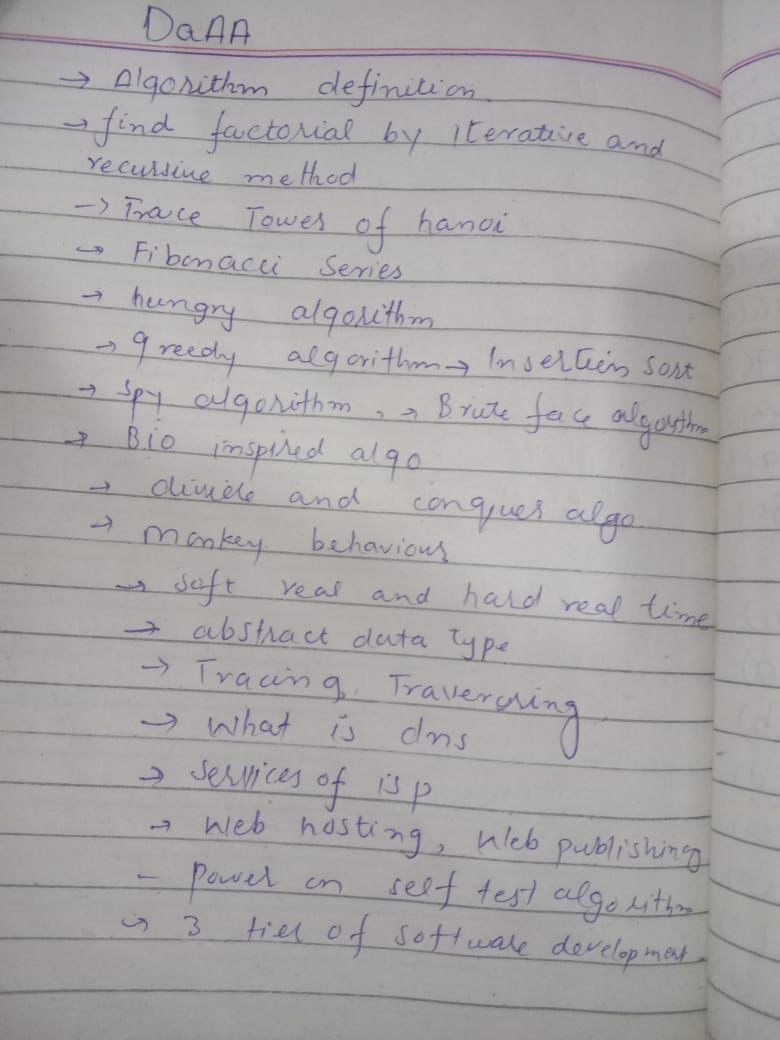 DaAA
→ Algorithm definition.
→ find factorial by iterative and
recursive method
→ Trace Tower of hanoi
→ Fibonacci Series
→ hungry algorithm
→ greedy algorithm → Insertion sort
→ Spy algorithm, → Brute face algorithm
→ Bio inspired algo
→ divide and conquer algo
→ Monkey behaviour
→ soft real and hard real time
→ abstract data type
→ Tracing, Travercring
→ What is dns
→ Services of isp
→ Web hosting, Web publishing
- power on self test algorithm
→ 3 tier of software development